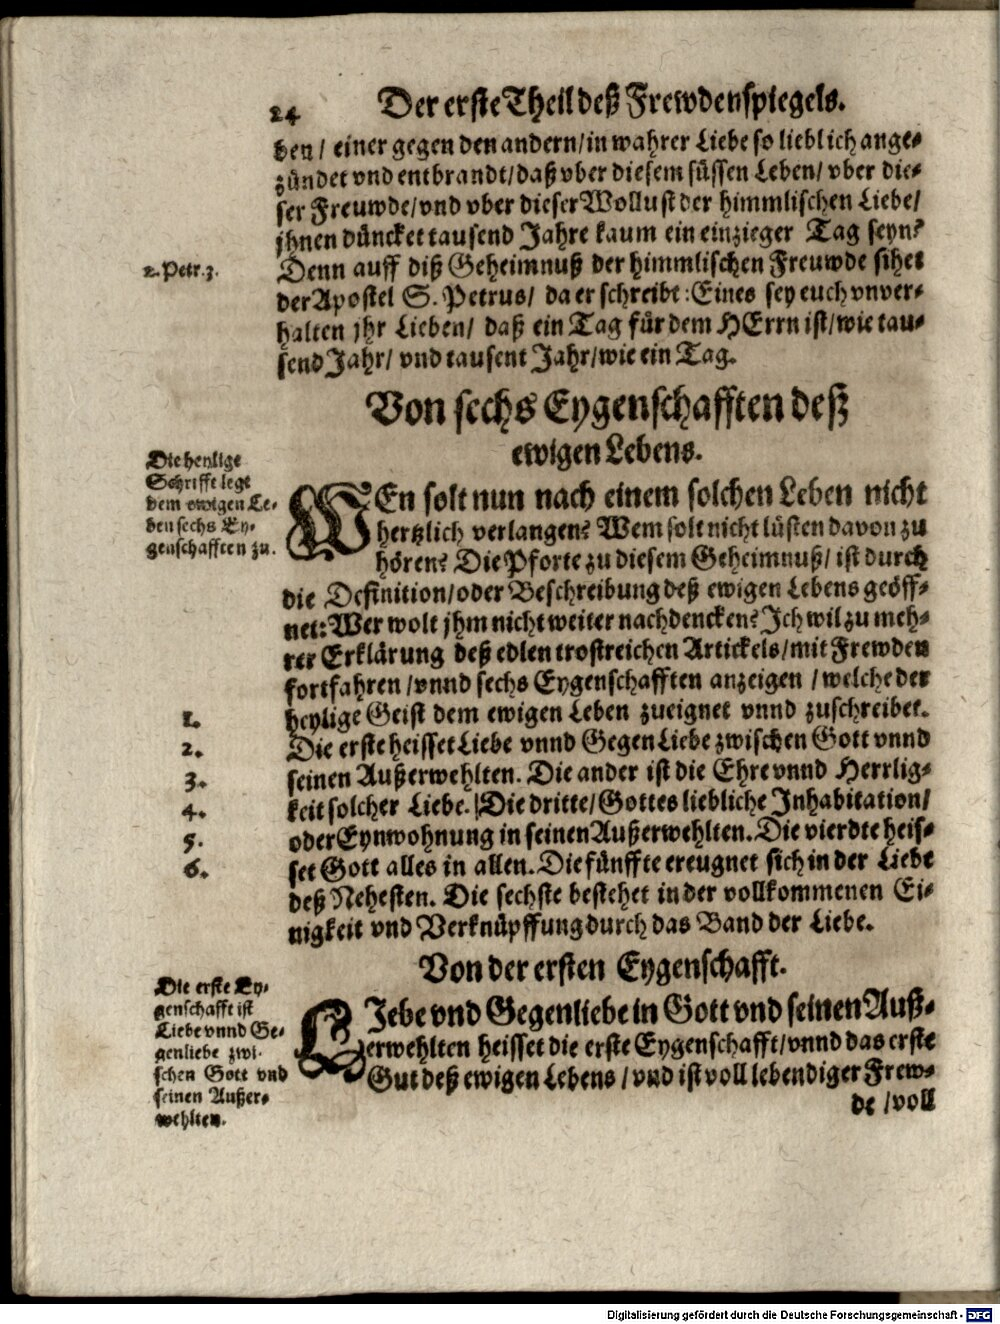 24
Der erste Theil deß Frewdenspiegels.
ben / einer gegen den andern / in wahrer Liebe so lieblich ange-
zündet vnd entbrandt / daß vber diesem süssen Leben / vber die-
ser Freuwde / vnd vber dieser Wollust der himmlischen Liebe /
jhnen düncket tausend Jahre kaum ein einzieger Tag seyn?
2. Petr. 3.
Denn auff diß Geheimnuß der himmlischen Freuwde sihet
der Apostel S. Petrus / da er schreibt: Eines sey euch vnver-
halten jhr Lieben / daß ein Tag für dem HErrn ist / wie tau-
send Jahr / vnd tausent Jahr / wie ein Tag.
Von sechs Eygenschafften deß
ewigen Lebens.
Die heylige
Schrifft legt
dem ewigen Le-
ben sechs Ey-
genschafften zu.
WEn solt nun nach einem solchen Leben nicht
hertzlich verlangen? Wem solt nicht lüsten davon zu
hören? Die Pforte zu diesem Geheimnuß / ist durch
die Definition / oder Beschreibung deß ewigen Lebens geöff-
net: Wer wolt jhm nicht weiter nachdencken? Ich wil zu meh-
rer Erklärung deß edlen trostreichen Artickels / mit Frewden
fortfahren / vnnd sechs Eygenschafften anzeigen / welche der
heylige Geist dem ewigen Leben zueignet vnnd zuschreibet.
Die erste heisset Liebe vnnd GegenLiebe zwischen Gott vnnd
seinen Außerwehlten. Die ander ist die Ehre vnnd Herrlig-
keit solcher Liebe. Die dritte / Gottes liebliche Inhabitation /
oder Eynwohnung in seinen Außerwehlten. Die vierdte heis-
set Gott alles in allen. Die fünffte ereugnet sich in der Liebe
deß Nehesten. Die sechste bestehet in der vollkommenen Ei-
nigkeit vnd Verknüpffung durch das Band der Liebe.
1.
2.
3.
4.
5.
6.
Von der ersten Eygenschafft.
Die erste Ey-
genschafft ist
Liebe vnnd Ge-
genliebe zwi-
schen Gott vnd
seinen Außer-
wehlten.
LIebe vnd Gegenliebe in Gott vnd seinen Auß-
erwehlten heisset die erste Eygenschafft / vnnd das erste
Gut deß ewigen Lebens / vnd ist voll lebendiger Frew-
de / voll
Digitalisierung gefördert durch die Deutsche Forschungsgemeinschaft - DFG